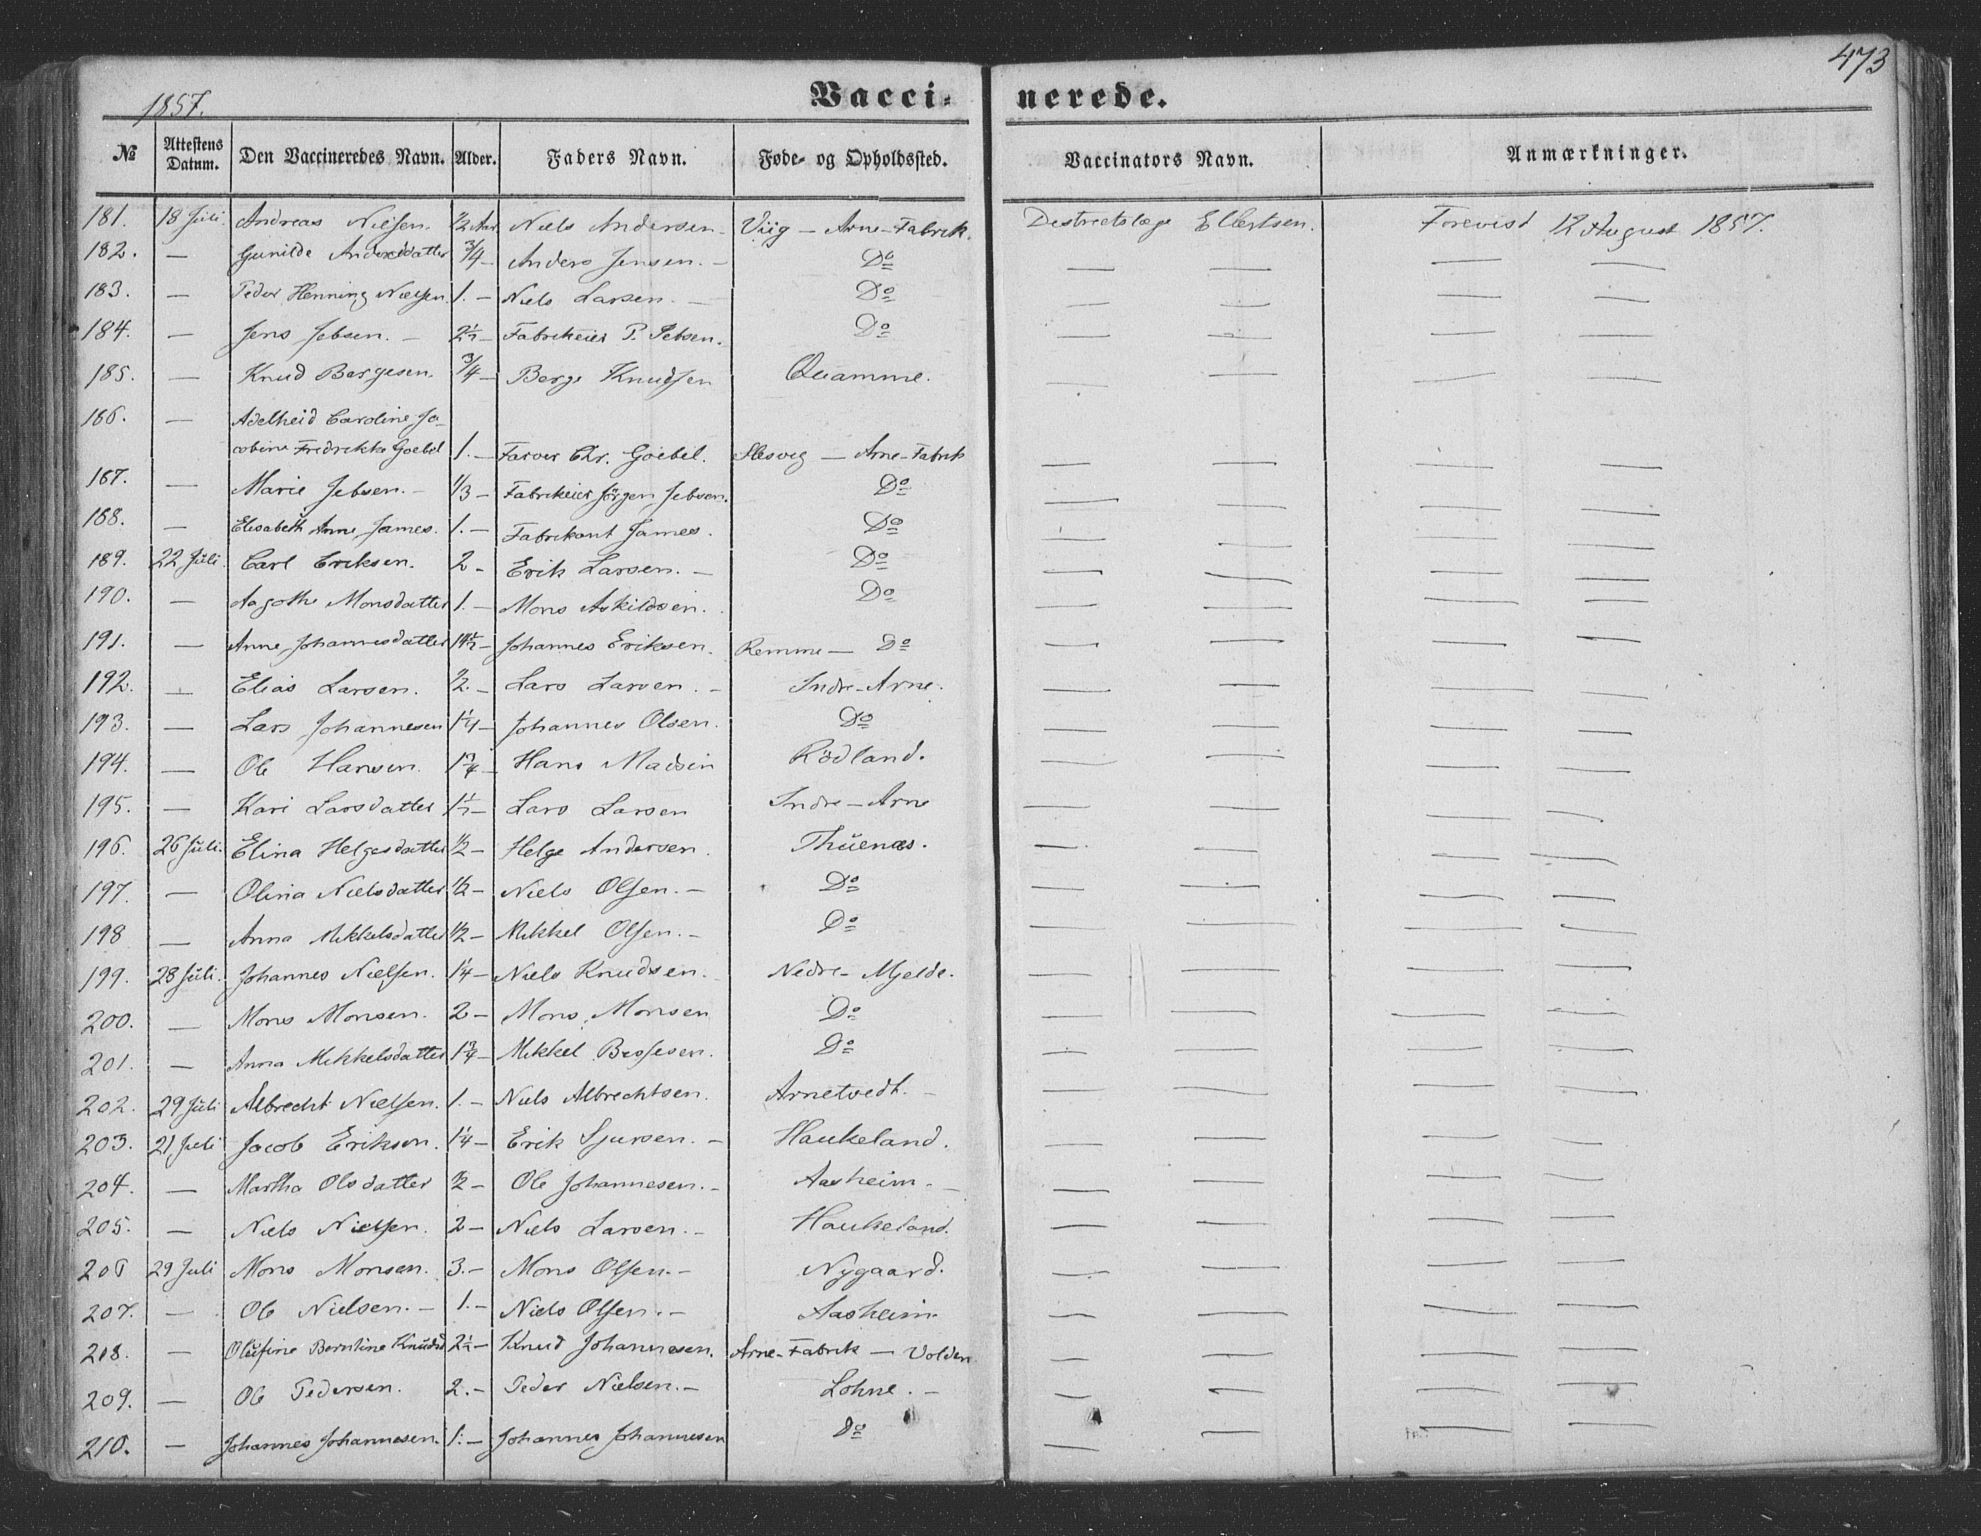 473
1857.
Vacci- nerede.
№ Attestens Datum. Den Vaccineredes Navn. Alder. Faders Navn. Føde- og Opholdssted. Vaccinators Navn. Anmærkninger.
181. 18 Juli. Andreas Nielsen. ½ Aar Niels Andersen - Viig - Arne-Fabrik. Destrictslæge Ellertsen. Forevist 12 August 1857.
182. — Gunilde Andersdatter ¾ - Anders Jensen. - Do — — — —
183. — Peder Henning Nielsen. 1. - Niels Larsen. - Do — — — —
184. — Jens Jebsen. - 2½ - Fabrikeier P. Jebsen. Do — — — —
185. — Knud Børgesen. ¾ - Børge Knudsen Quamme. — — — —
186. — Adelheid Caroline Ja-
cobine Fredrikke Goebel 1. - Farver Chr. Goebel. Slesvig — Arne-Fabrik — — — —
187. — Marie Jebsen. - 1/3 - Fabrikeier Jørgen Jebsen. Do — — — —
188. — Elisabeth Anne James. 1. - Fabrikant James. Do — — — —
189. 22 Juli. Carl Eriksen. 2 - Erik Larsen. - Do — — — —
190. — Aagothe Monsdatter 1. - Mons Askildsen. Do — — — —
191. — Anne Johannesdatter - Johannes Eriksen. Remme — Do — — — —
192. — Elias Larsen. ½. - Lars Larsen. - Indre-Arne. — — — —
193. — Lars Johannesen 1¼ - Johannes Olsen. Do — — — —
194. — Ole Hansen. 1¾ - Hans Madsen Rödland. — — — —
195. — Kari Larsdatter 1½ - Lars Larsen Indre-Arne — — — —
196. 26 Juli. Elina Helgesdatter ½ - Helge Andersen. Thuenæs. — — — —
197. — Olina Nielsdatter ½ - Niels Olsen. - Do — — — —
198 — Anna Mikkelsdatter ½ - Mikkel Olsen. - Do — — — —
199. 28 Juli. Johannes Nielsen. 1¼ - Niels Knudsen. - Nedre-Mjelde. — — — —
200. — Mons Monsen. 2 - Mons Monsen Do — — — —
201. — Anna Mikkelsdatter 1¾ - Mikkel Do — — — —
202. 29 Juli Albrecht Nielsen. 1. - Niels Albrechtsen. Arnetvedt. - — — — —
203. 21 Juli Jacob Eriksen. 1¼ - Erik Sjursen. - Haukeland. — — — —
204. — Martha Olsdatter ½ - Ole Johannesen. - Aasheim. - — — — —
205. — Niels Nielsen. 2 - Niels Larsen. - Haukeland. — — — —
206 29 Juli Mons Monsen. 3. - Mons Olsen. - Nygaard. — — — —
207. — Ole Nielsen. - 1. - Niels Olsen. - Aasheim. — — — —
208. — Olufine Berntine Knudsd 2½ - Knud Johannesen. Arne-Fabrik — Volden — — — —
209. — Ole Pedersen. 2. - Peder Nielsen. - Lohne. - — — — —
210. — Johannes Johannesen. 1. - Johannes Johannesen Do — — — —